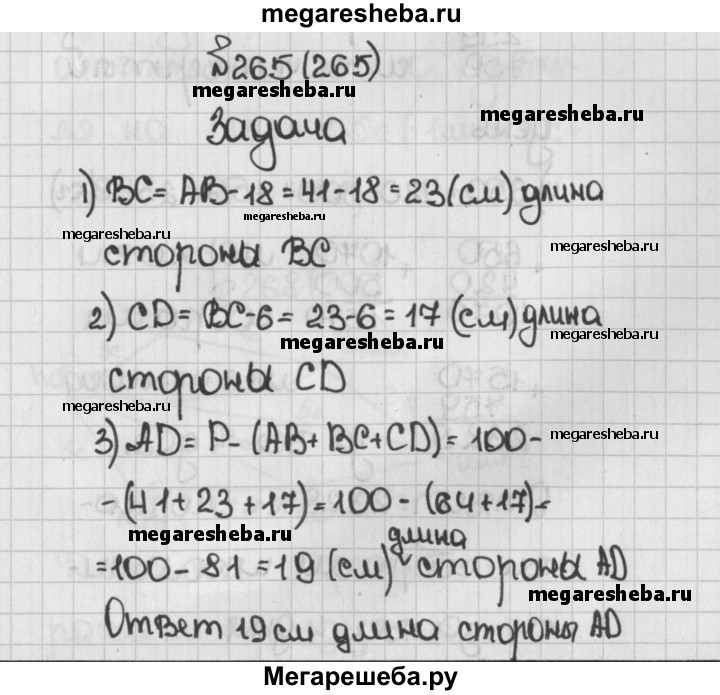 megaresheba.ru
№265 (265)
megaresheba.ru
megaresheba.ru
Задача
1) BC = AB-18 = 41-18 = 23 (см) длина
megaresheba.ru
megaresheba.ru
megaresheba.ru
стороны BC
2) CD = BC-6 = 23-6 = 17 (см) длина
megaresheba.ru
megaresheba.ru
стороны CD
megaresheba.ru
3) AD = P - (AB + BC + CD) = 100 -
megaresheba.ru
- (41 + 23 + 17) = 100 - (64 + 17) =
megaresheba.ru
длина
= 100 - 81 = 19 (см) стороны AD
megaresheba.ru
Ответ 19 см длина стороны AD
Мегарешеба.ру